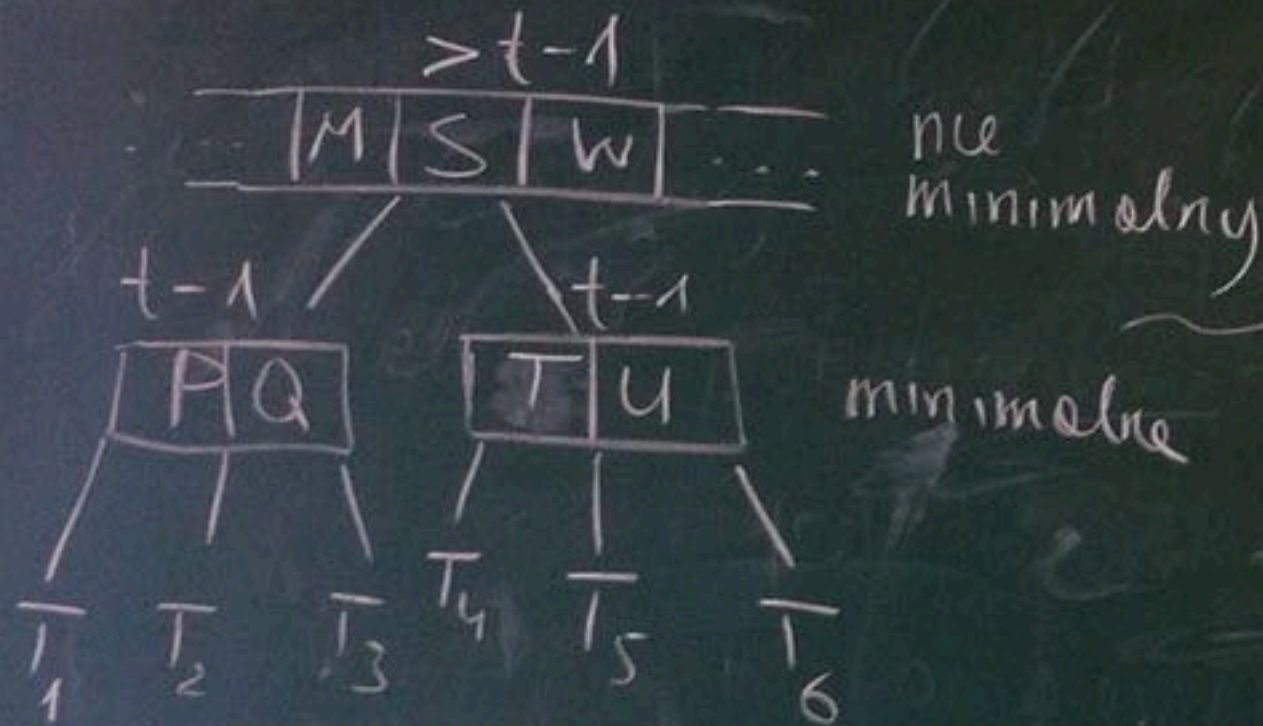 > t-1
... M S W ...
nie
minimalny
t-1 t-1
P Q T U
minimalne
T1 T2 T3 T4 T5 T6